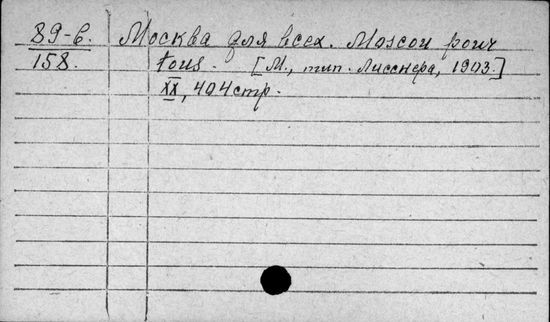 89-6. Москва для всех. Moscou pour
158. tous. [М., тип. Лисснера, 1903.]
XX, 404 стр.